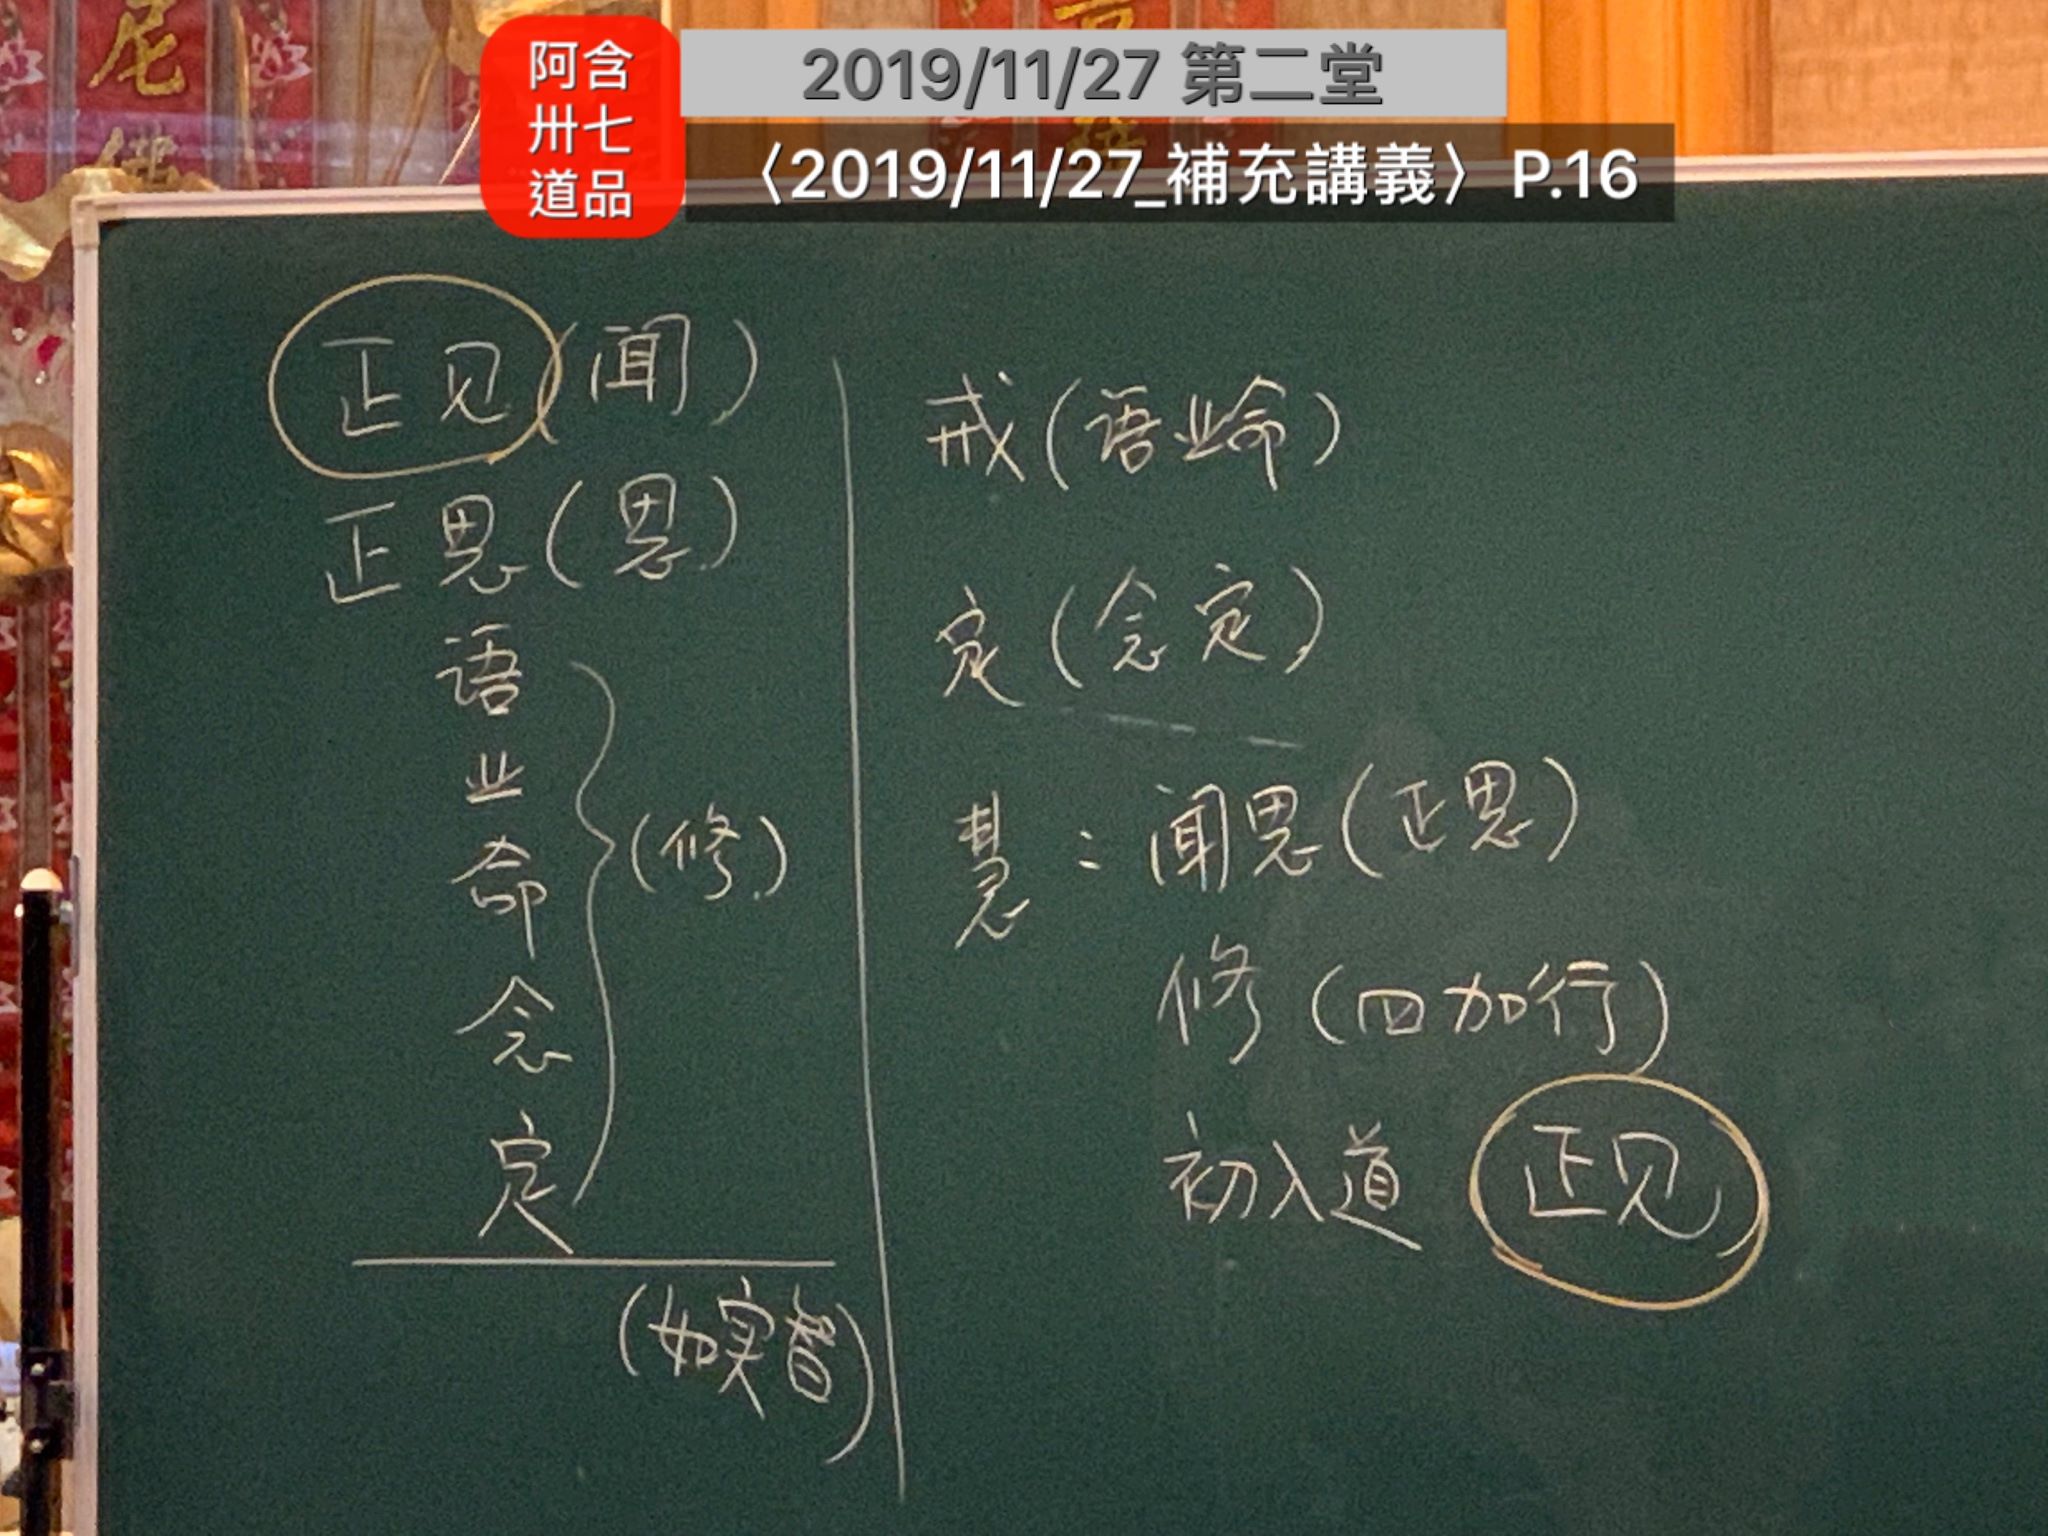 阿含
卅七
道品
2019/11/27 第二堂
〈2019/11/27_補充講義〉P.16
尼
佛
正见(闻)
正思(思)
语
业
命
念
定
(修)
(如实智)
戒(语业命)
定(念定)
慧:闻思(正思)
修(四加行)
初入道 正见